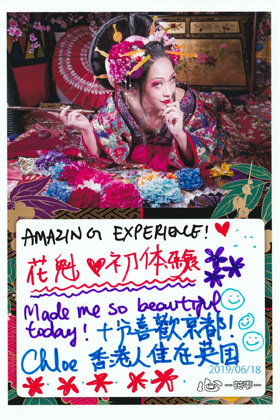 AMAZING EXPERIENCE!
花魁♥初体験
Made me so beautiful
today! 十分喜歡京都!
Chloe 香港人住在英国
2019/06/18
心 -花雫-